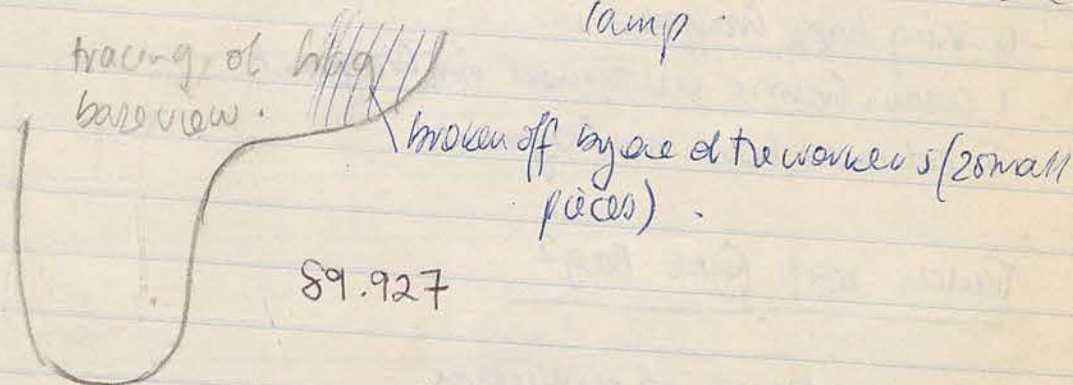 lamp.
tracing of frag
base view.
broken off by one of the workers (2 small
pieces).
89.927